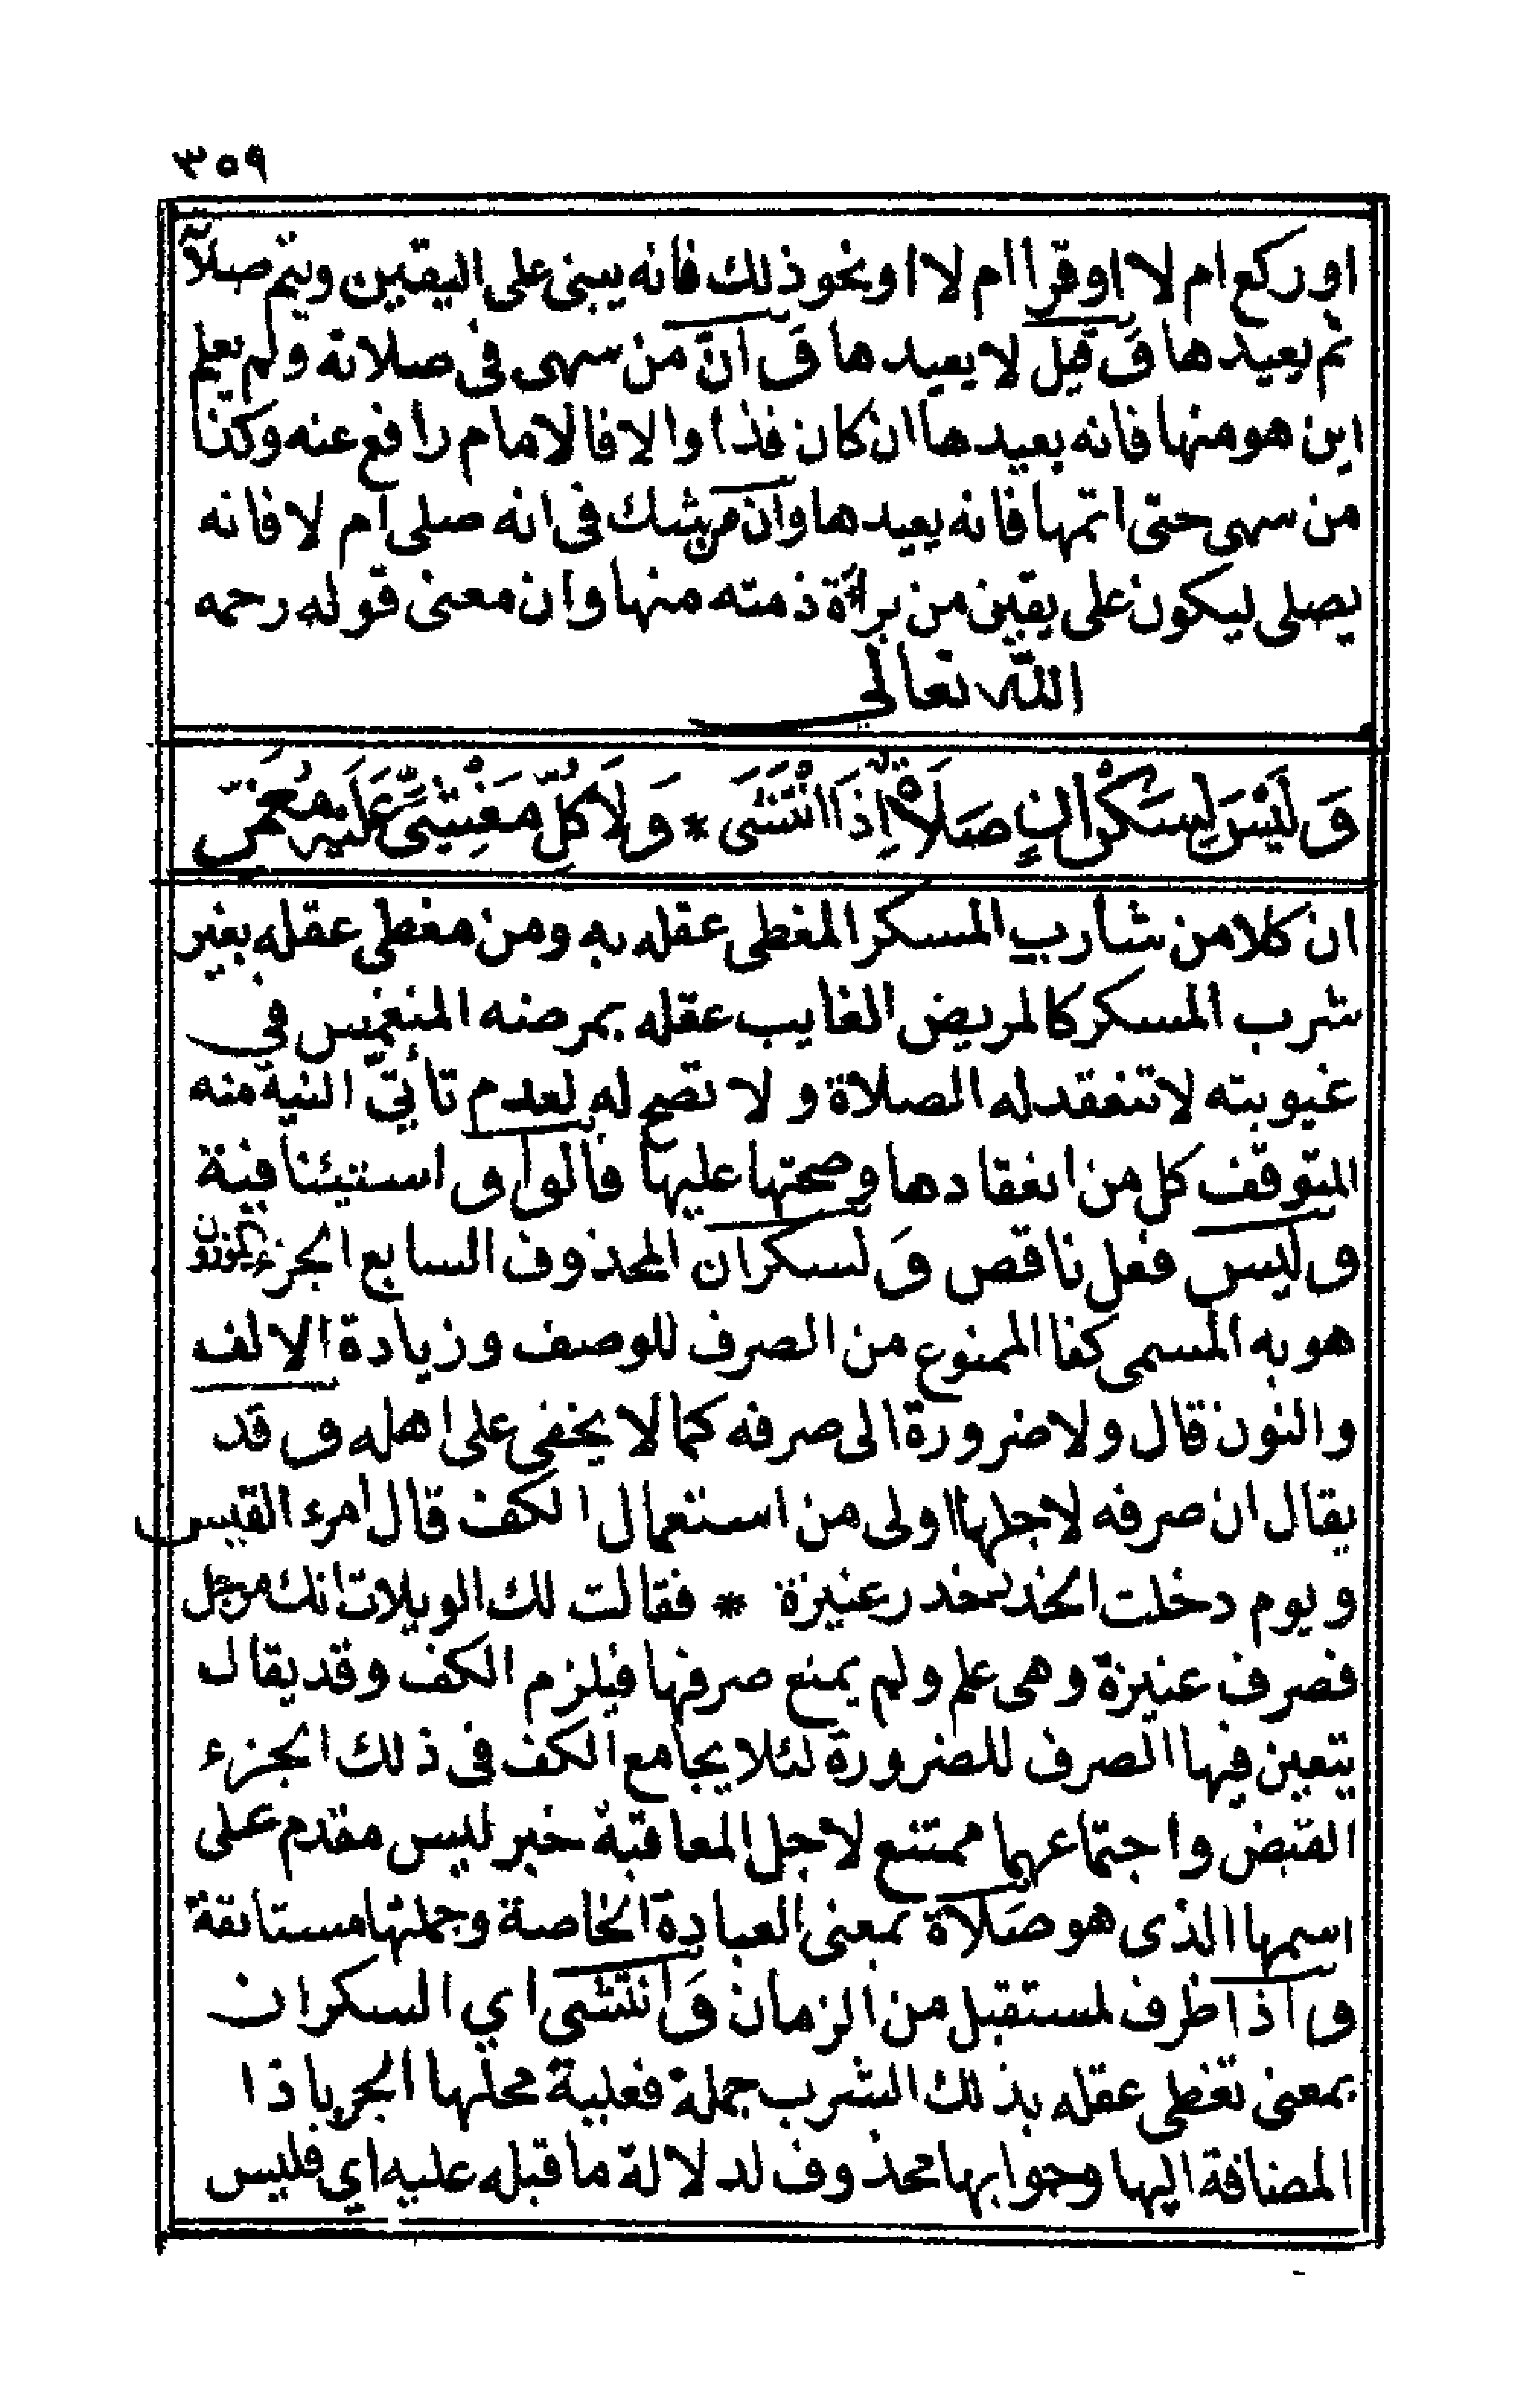 ٣٥٩
اوركع ام لا اوقرا ام لا اونحو ذلك فانه يبنى على اليقين ويتم صلاته
ثم يعيدها وَ قيل لا يعيدها وَ انّ من سهى فى صلاته ولم يعلم
اين هو منها فانه يعيدها ان كان فذا والا فالامام رافع عنه وكذا
من سهى حتى اتمها فانه يعيدها وان من شك فى انه صلى ام لا فانه
يصلى ليكون على يقين من براءة ذمته منها وان معنى قوله رحمه
الله تعالى
وَ لَيْسَ لِسَكْرَانٍ صَلَاةٌ اِذَا انْتَشَى * وَ لَا كُلِّ مَغْشِيٍّ عَلَيْهِ مُغَمَّسِ
ان كلا من شارب المسكر المغطى عقله به ومن مغطى عقله بغير
شرب المسكر كالمريض الغايب عقله بمرضه المنغمس في
غيوبته لا تنعقد له الصلاة و لا تصح له لعدم تأتيّ النية منه
المتوقف كل من انعقادها وصحتها عليها فالواو استيئنافية
و ليس فعل ناقص وَ لسكران المحذوف السابع الجزء الموزون
هو به المسمى كفا الممنوع من الصرف للوصف وزيادة الالف
والنون قال ولا ضرورة الى صرفه كما لا يخفى على اهله و قد
يقال ان صرفه لاجلها اولى من استعمال الكف قال امرء القيس
ويوم دخلت الخدر خدر عنيزة * فقالت لك الويلات انك مرجل
فصرف عنيزة وهى علم ولم يمنع صرفها فيلزم الكف وقد يقال
يتعين فيها الصرف للضرورة لئلا يجامع الكف فى ذلك الجزء
القبض واجتماعهما ممتنع لاجل المعاقبة خبر ليس مقدم على
اسمها الذى هو صَلاة بمعنى العبادة الخاصة وجملتها مستانفة
و اذا ظرف لمستقبل من الزمان وَ انتشى اي السكران
بمعنى تغطى عقله بذلك الشرب جملة فعلية محلها الجر باذا
المضافة اليها وجوابها محذوف لدلالة ما قبله عليه اي فليس